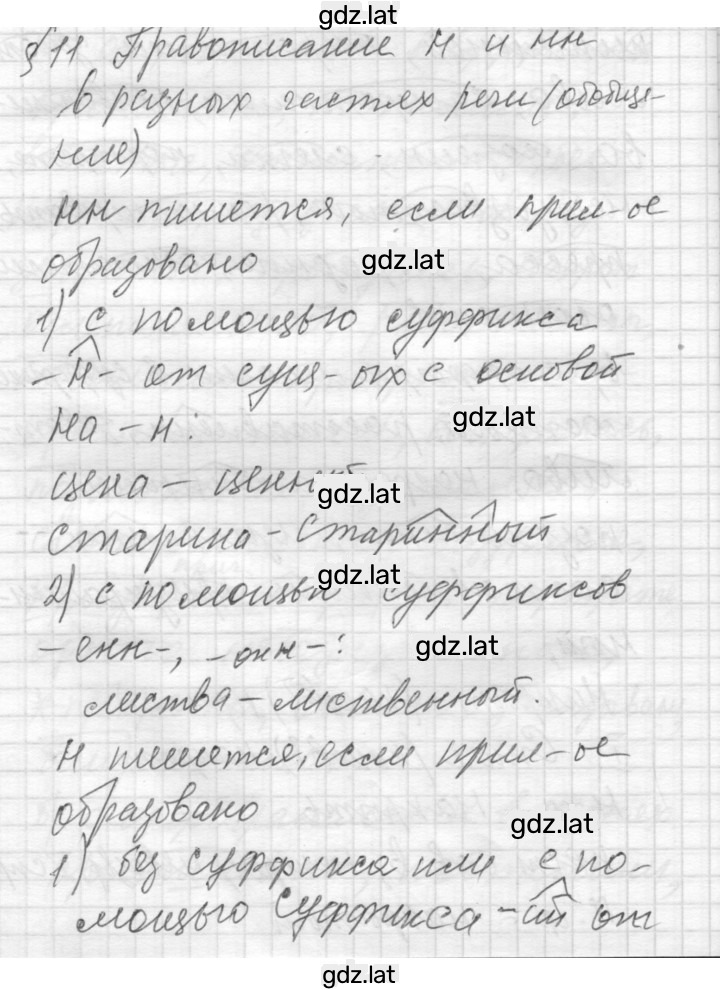 gdz.lat
§ 11 Правописание н и нн
в разных частях речи (обобще-
ние)
нн пишется, если прил-ое
образовано
gdz.lat
1) с помощью суффикса
-н- от сущ-ых с основой
на -н:
gdz.lat
цена - ценный
gdz.lat
старина - старинный
gdz.lat
2) с помощью суффиксов
-енн-, -онн-:
gdz.lat
листва - лиственный.
н пишется, если прил-ое
образовано
gdz.lat
1) без суффикса или с по-
мощью суффикса -ий от
gdz.lat